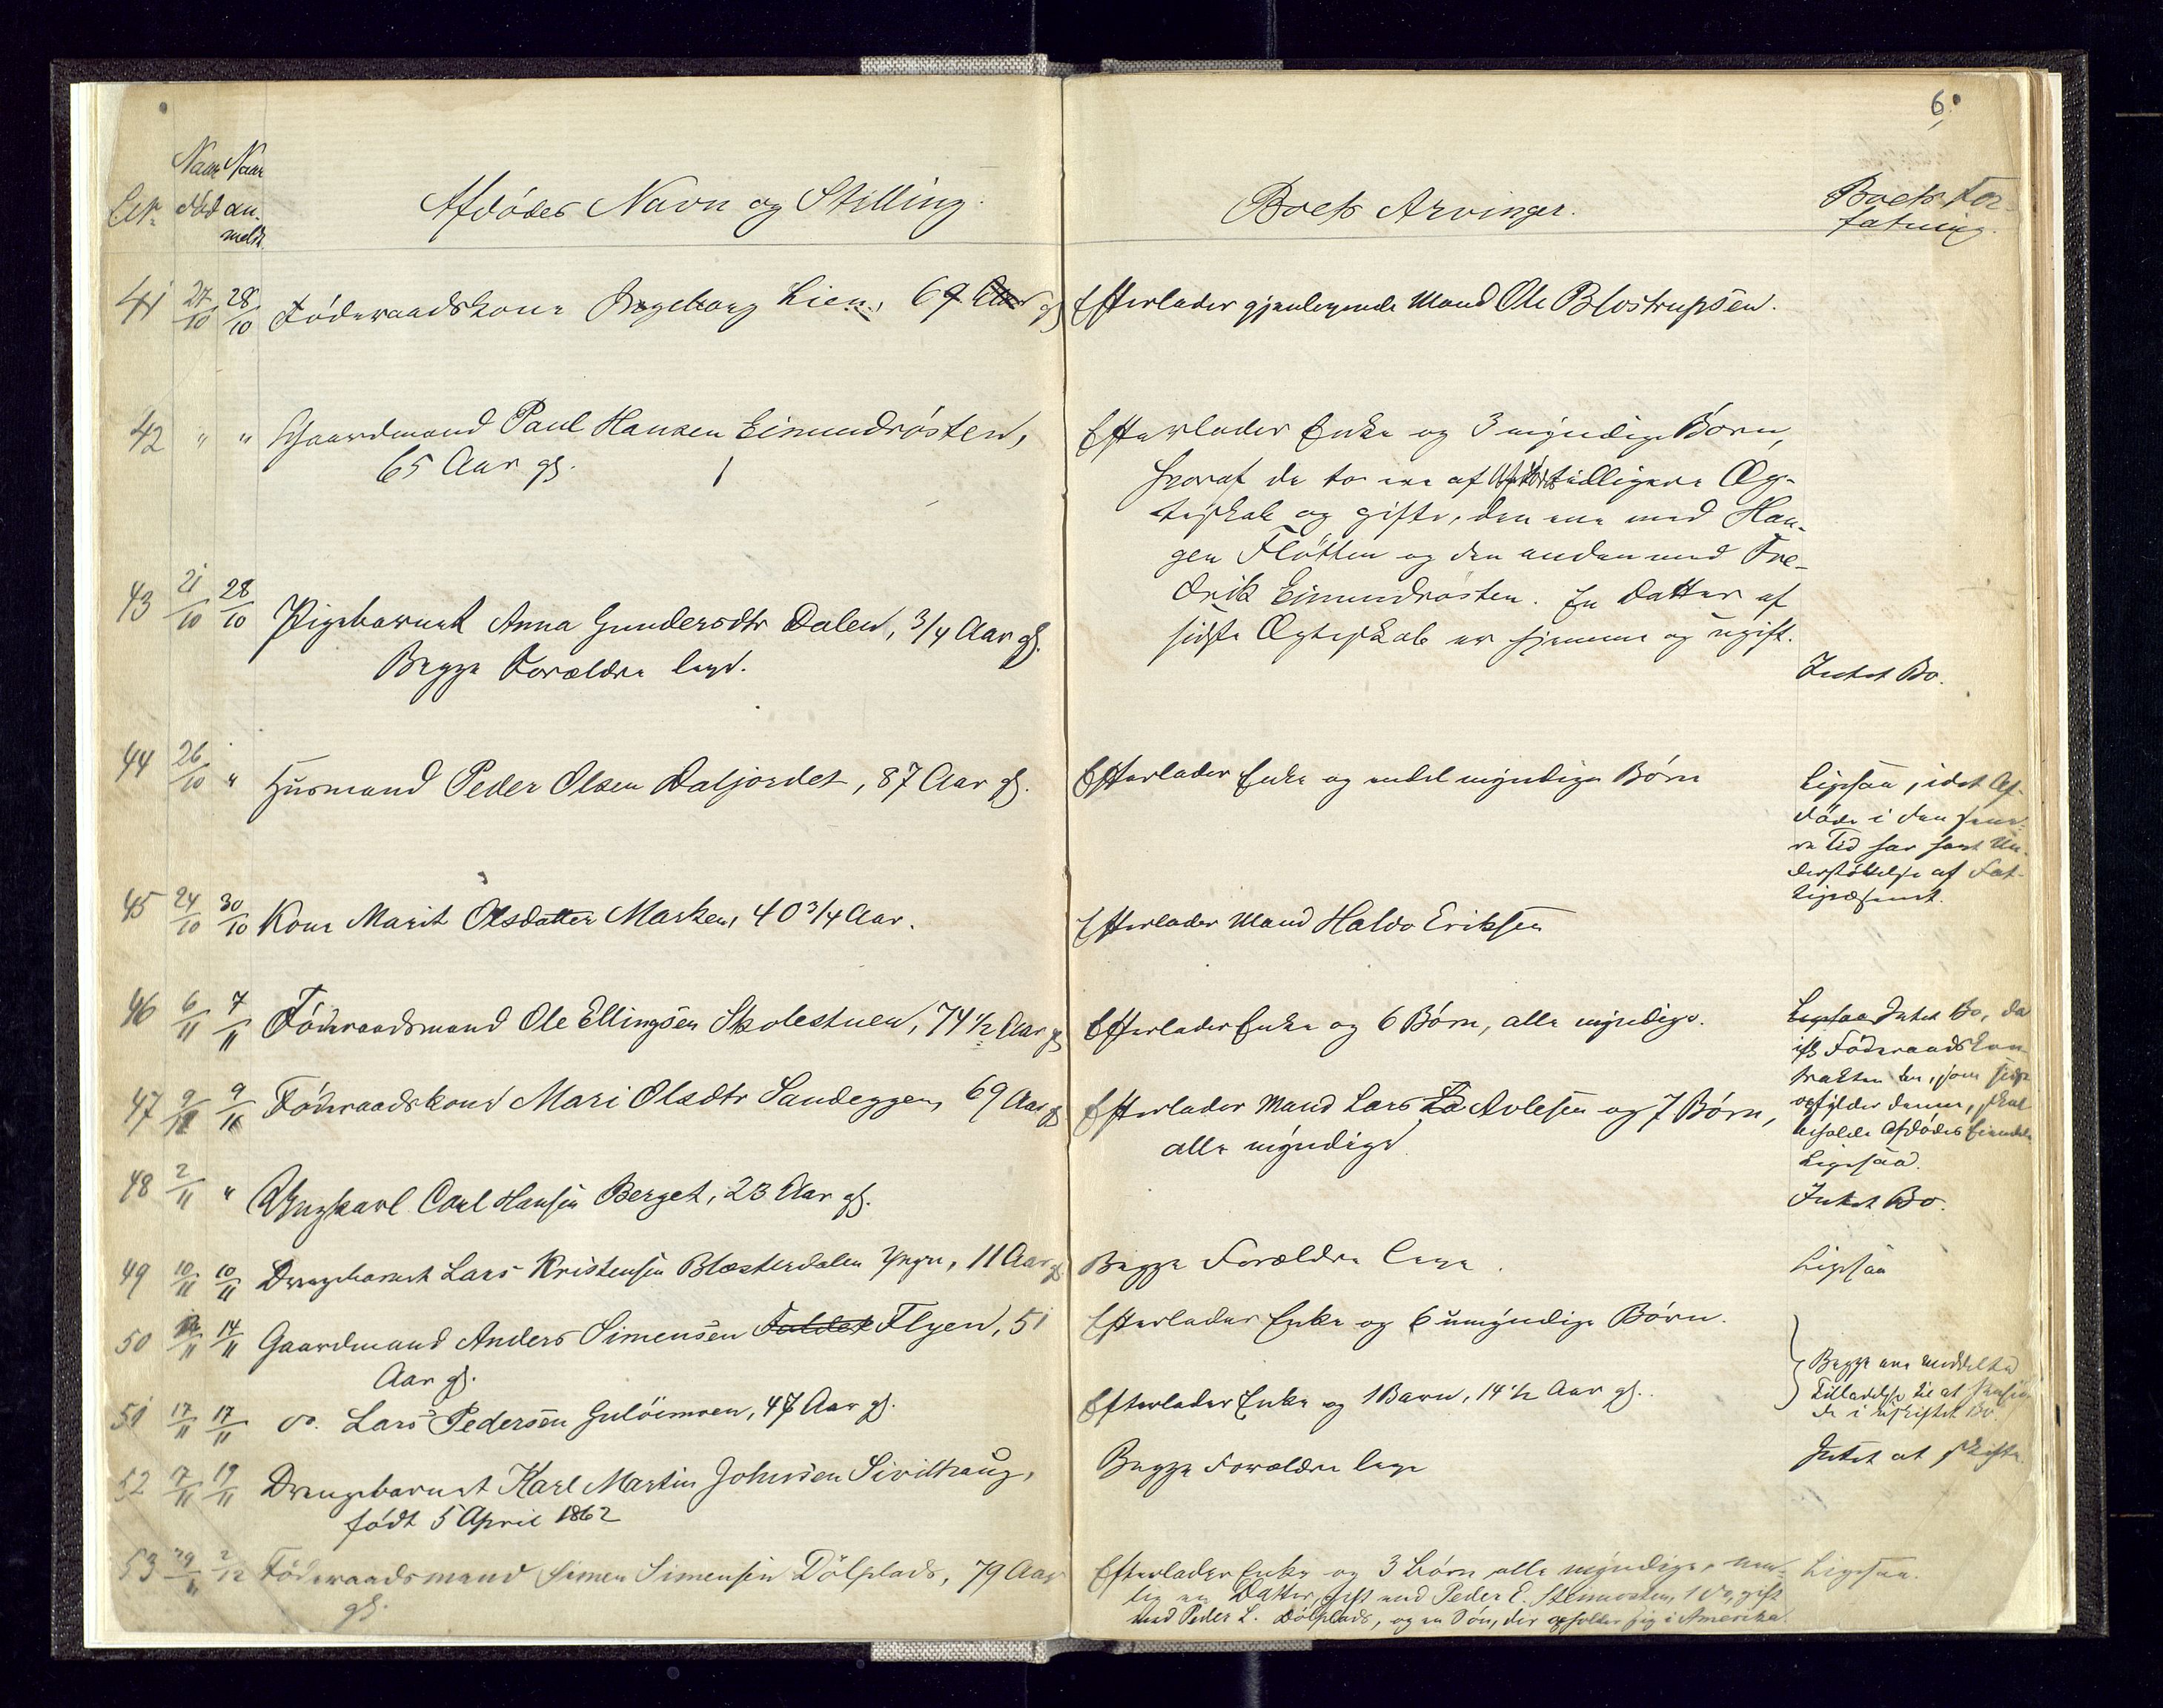 6.
Naar Naar
død an-
meldt.
Afdødes Navn og Stilling.
Boets Arvinger.
Boets For-
fatning.
41 27/10 28/10 Føderaadskone Ingeborg Lien, 69 Aar gl.
Efterlader gjenlevende Mand Ole Blostrupsen.
42 " " Gaardmand Paul Hansen Eimundrøsten,
65 Aar gl.
Efterlader Enke og 3 myndige Børn,
hvoraf de to ere af tidligere Æg-
teskab og gifte, den ene med Hau-
gen Fløtten og den anden med Fre-
drik Eimundrøsten. En Datter af
sidste Ægteskab er hjemme og ugift.
43 21/10 28/10 Pigebarnet Anna Gundersdtr Dalen, 3/4 Aar gl.
Begge Forældre leve.
Intet Bo.
44 26/10 " Husmand Peder Olsen Daljordet, 87 Aar gl.
Efterlader Enke og endel myndige Børn
Ligesaa, idet Af-
døde i den sene-
re Tid har havt Un-
derstøttelse af Fat-
tigvæsenet.
45 24/10 30/10 Kone Marit Olsdatter Masken, 40 3/4 Aar.
Efterlader Mand Haldo Eriksen
46 6/11 7/11 Føderaadsmand Ole Ellingsen Skolestuen, 74 1/2 Aar gl
Efterlader Enke og 6 Børn, alle myndige.
Ligesaa Intet Bo, da
Føderaadskon-
trakten den, som
opfylder denne, skal
beholde Afdødes Eiendele
47 9/11 9/11 Føderaadskone Mari Olsdtr Sandeggen, 69 Aar gl
Efterlader Mand Lars Avlesen og 7 Børn,
alle myndige
Ligesaa.
48 2/11 " Ungkarl Carl Hansen Berget, 23 Aar gl.
Intet Bo.
49 10/11 10/11 Drengebarnet Lars Kristensen Blæsterdalen yngre, 11 Aar gl
Begge Forældre leve.
Ligesaa
50 14/11 Gaardmand Anders Simensen Flyen, 51
Aar gl.
Efterlader Enke og 6 umyndige Børn.
Begge ere meddelte
Tilladelse til at hensid-
de i uskiftet Bo.
51 17/11 17/11 do. Lars Pedersen Guløimoen, 47 Aar gl.
Efterlader Enke og 1 Barn, 14 1/2 Aar gl.
52 17/11 19/11 Drengebarnet Karl Martin Johnsen Sivilhaug,
født 5 April 1862
Begge Forældre leve
Intet at skifte
53 29/11 2/12 Føderaadsmand Simen Simensen Dølplads, 79 Aar
gl.
Efterlader Enke og 3 Børn alle myndige, nem-
lig en Datter, gift med Peder E. Steimosten, 1 do, gift
med Peder L. Dølplads, og en Søn, der opholder sig i Amerika.
Ligesaa.